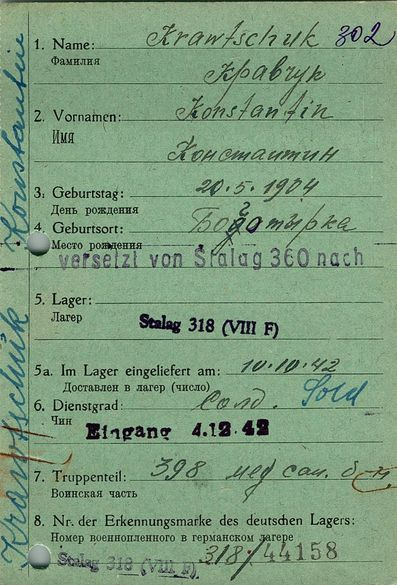 1. Name: Krawtschuk 302
Фамилия Кравчук
2. Vornamen: Konstantin
Имя Константин
3. Geburtstag: 20.5.1904
День рождения
4. Geburtsort: Боготырка
Место рождения
versetzt von Stalag 360 nach
5. Lager:
Лагер
Stalag 318 (VIII F)
5a. Im Lager eingeliefert am: 10.10.42
Доставлен в лагер (число)
6. Dienstgrad: Солд. Sold
Чин
Eingang 4.12.42
7. Truppenteil: 398 мед сан. б-н.
Воинская часть
8. Nr. der Erkennungsmarke des deutschen Lagers:
Номер военнопленного в германском лагере
Stalag 318 (VIII F) 318/44158
Krawtschuk Konstantin